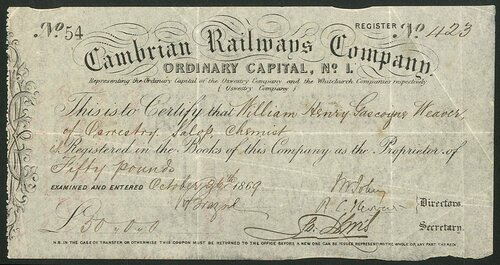 No 54
REGISTER No 423
Cambrian Railways Company.
ORDINARY CAPITAL, No 1.
Representing the Ordinary Capital of the Oswestry Company and the Whitchurch Companies respectively
(Oswestry Company)
This is to Certify that William Henry Gascoyne Weaver
of Oswestry Salop, Chemist
is Registered in the Books of this Company as the Proprietor of
Fifty Pounds
EXAMINED AND ENTERED October 26th 1869
Directors.
Secretary.
£50,0,0
N.B. IN THE CASE OF TRANSFER OR OTHERWISE THIS COUPON MUST BE RETURNED TO THE OFFICE BEFORE A NEW ONE CAN BE ISSUED REPRESENTING THE WHOLE OR ANY PART THEREOF.